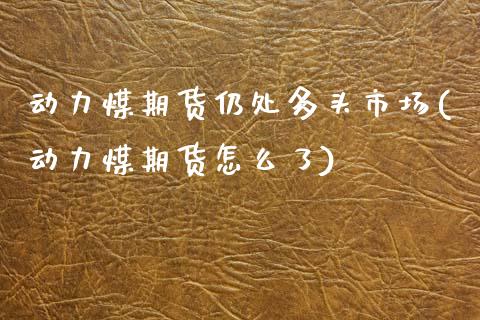 动力煤期货仍处多头市场(
动力煤期货怎么了)